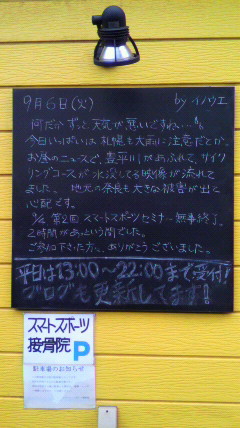 9月6日(火) by イノウエ
何だかずっと天気が悪いですね…
今日いっぱいは札幌も大雨に注意だとか。
お昼のニュースで、豊平川があふれて、サイク
リングコースが水没してる映像が流れて
ました。地元の奈良も大きな被害が出て
心配です。
第2回 スマートスポーツセミナー無事終了。
2時間があっという間でした。
ご参加下さった方々、ありがとうございました。
平日は13:00〜22:00まで受付!
ブログも更新してます!
スマートスポーツ
接骨院 P
駐車場のお知らせ